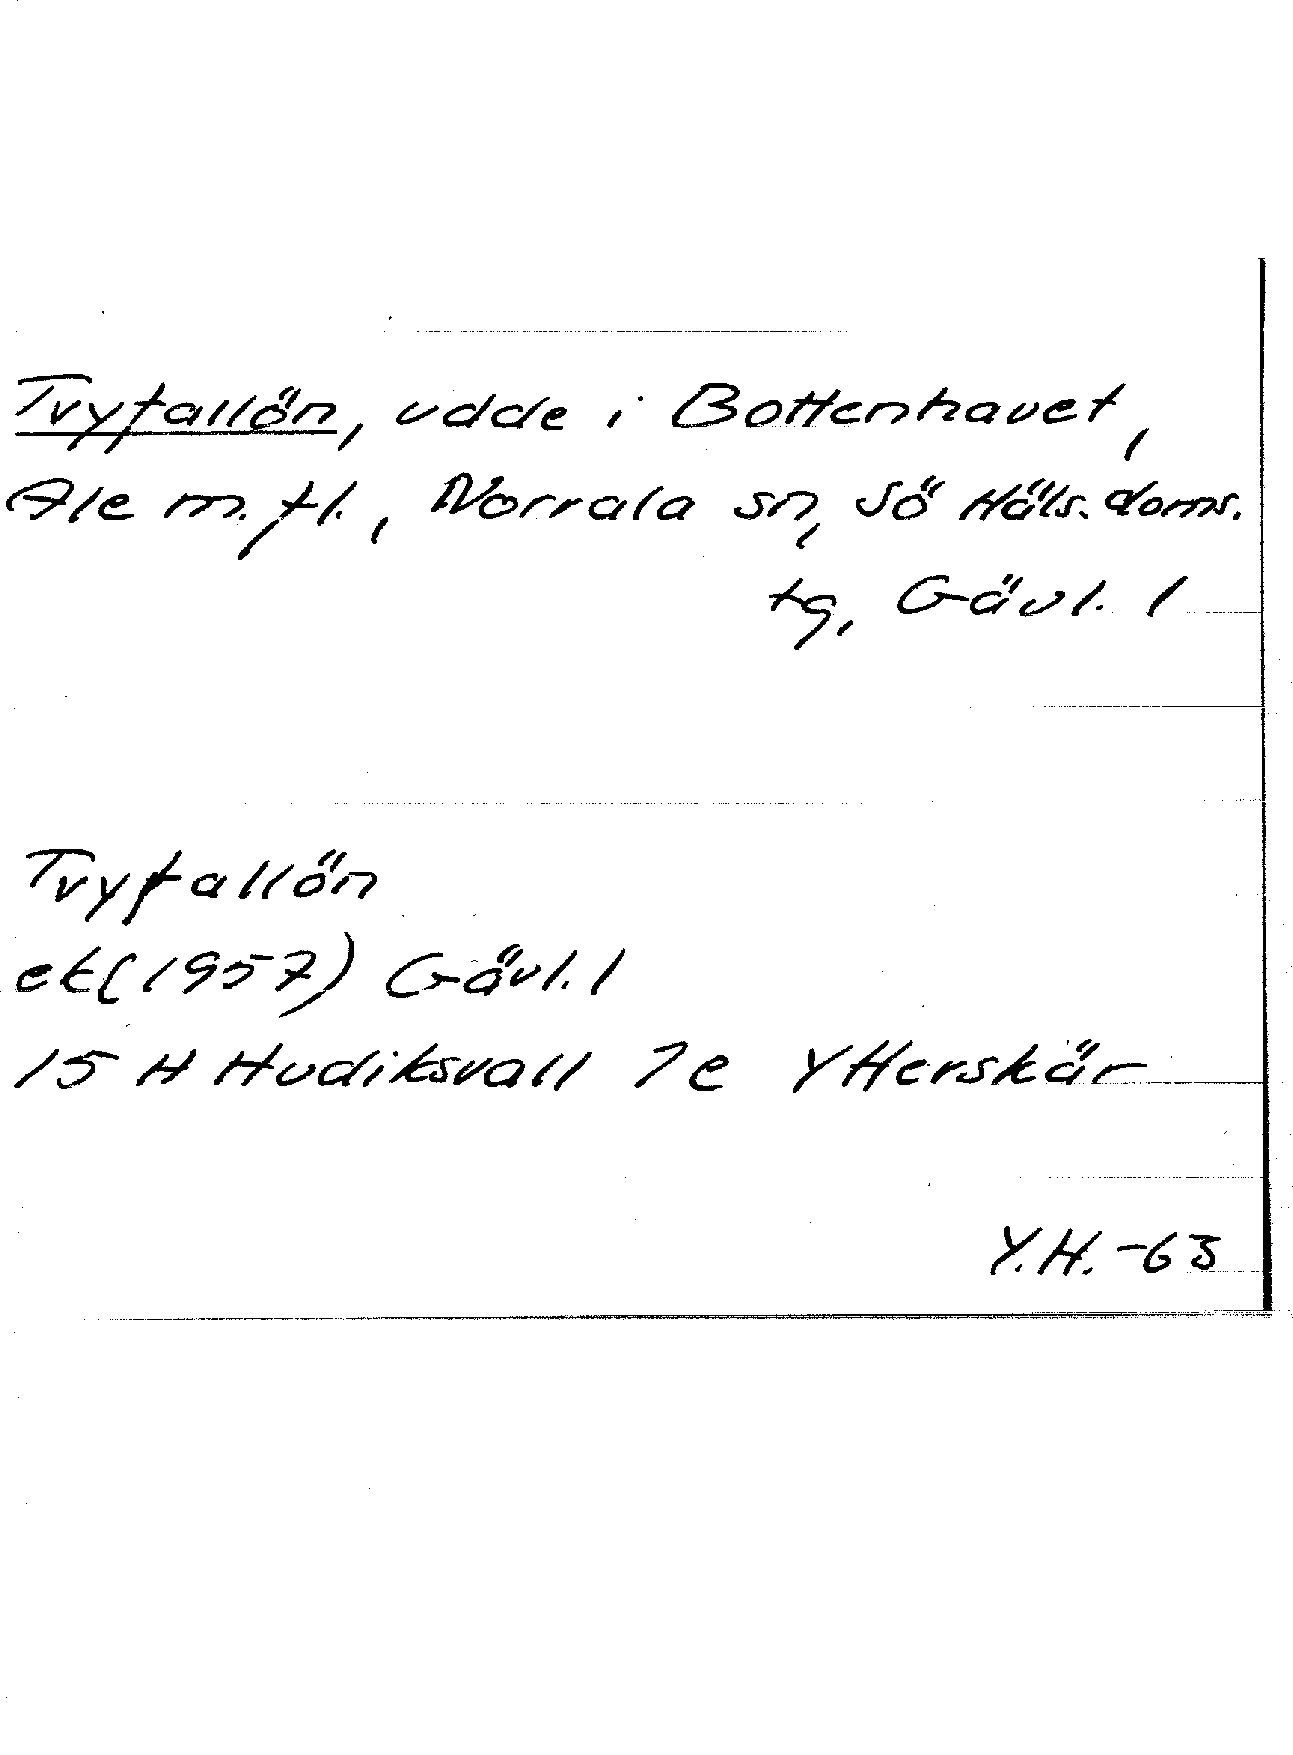 Tryfallön, udde i Bottenhavet,
Ale m.fl., Norrala sn, Sö Häls. doms.
tg, Gävl. l
Tryfallön
ek(1957) Gävl. l
15 H Hudiksvall 7e Ytterskär
Y.H. -63